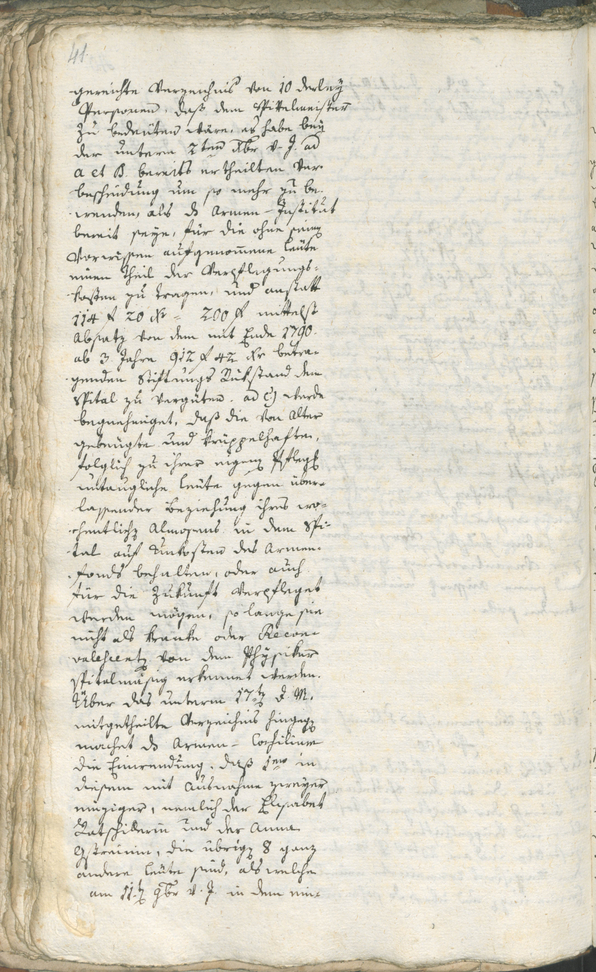 41.
gereichte Verzeichnis von 10 derley
Personen, daß dem Spitelmeister
zu bedeüten wäre, es habe beÿ
der unterm 2ten Xbr v. J. ad
a et B. bereits ertheilten Ver-
bescheidung um so mehr zu be-
wenden, als ds Armen-Institut
bereit seÿe, für die ohne sein
Vorwissen aufgenommene Leüte
einen Theil der Verpflegungs-
kosten zu tragen, und anstatt
114 f 20 xr - 200 f mittelst
Absatz von dem mit Ende 1790
ab 3 Jahre 912 f 42 xr betra-
genden Stiftungs Rükstand dem
Spital zu vergüten. ad c) werde
begnehmiget, daß die von Alter
gebeugte und krüppelhafte,
folglich zu ihrer eigen Pflege
untaugliche Leüte gegen über-
lassender Beziehung ihres wo-
chentlich Almosens in dem Spi-
tal auf Unkosten des Armen-
fonds behalten, oder auch
für die Zukunft verpfleget
werden mögen, so lange sie
nicht als Kranke oder Recon-
valescent von dem Physiker
spitalmäßig erkennet werden.
Über das unterm 17t d. M.
mitgetheilte Verzeichnis hingeg
machet ds Armen-Consilium
die Einwendung, daß in
diesem mit Ausnahme zweyer
einziger, nemlich der Elisabet
Latschiderin und der Anna
Gstreinin, die übrig 8 ganz
andere Leüte sind, als welche
am 11t 9br v. J. in dem ein-